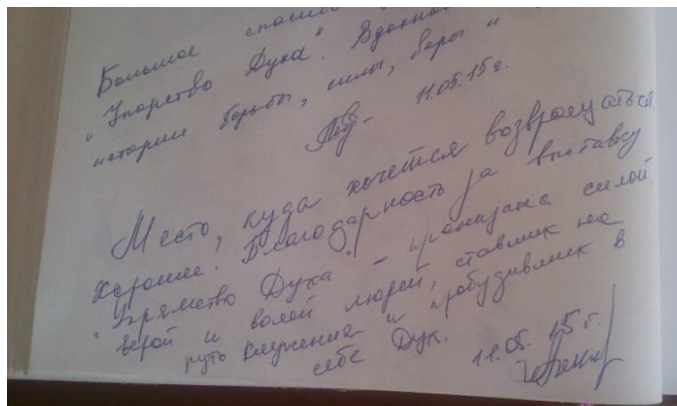 Большое спасибо
"Упорство Духа".
истории борьбы, силы, веры и
11.05.15г.
Место, куда хочется возвращаться
хорошее. Благодарность за выставку
"Упрямство Духа" - пронизана силой,
верой и волей людей, ставших на
путь служения и пробудивших в
себе Дух.
11.05.15г.